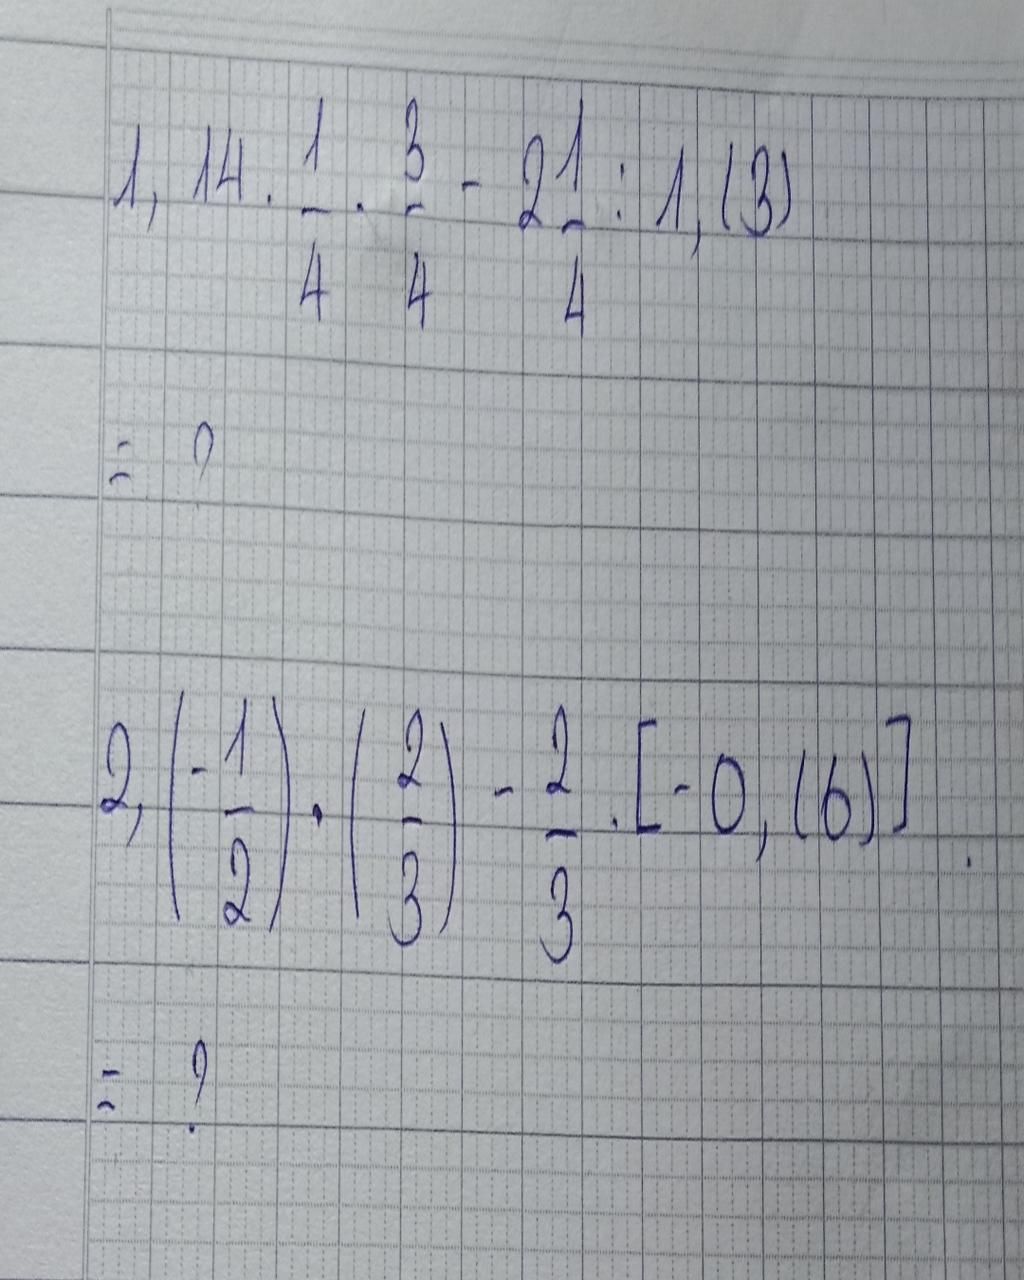 1, 14 . 1/4 . 3/4 - 21 1/4 : 1,(3)
= ?
2, (-1/2) . (2/3) - 2/3 . [-0,(6)] .
= ?